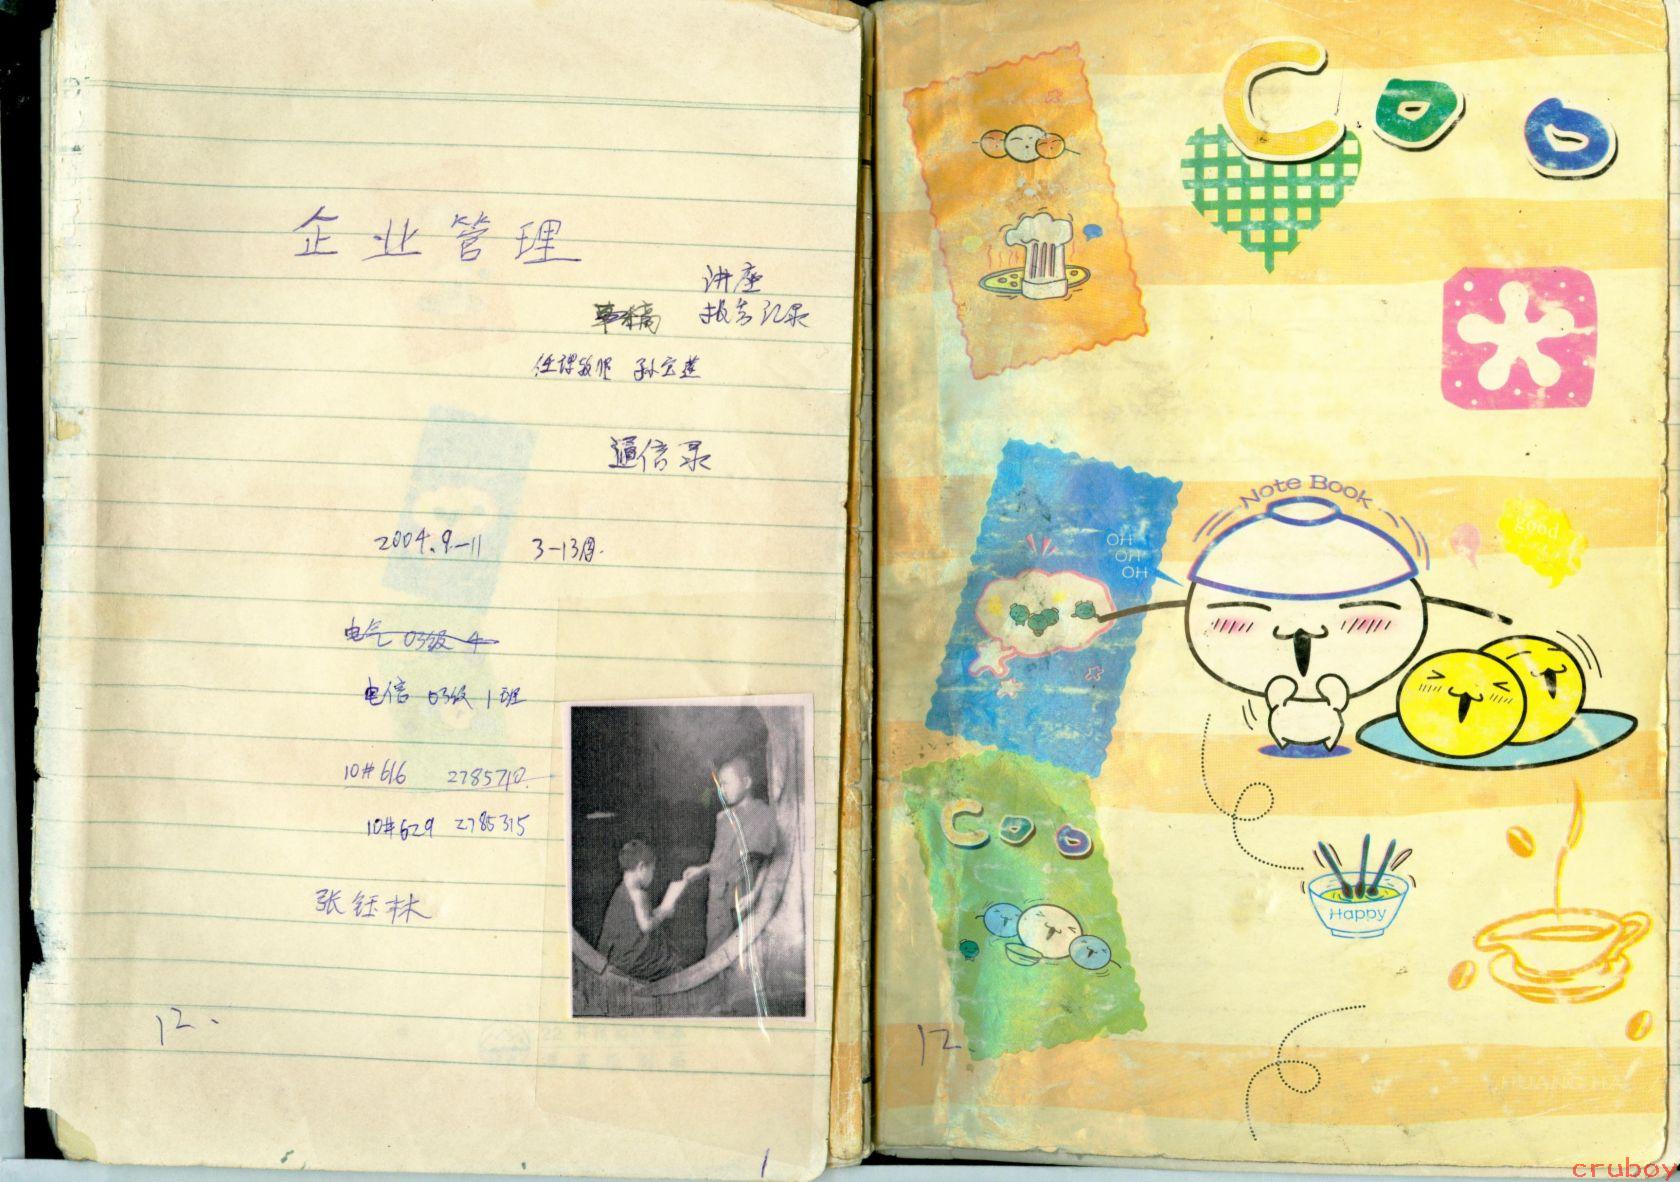 企业管理
讲座
草稿 报告记录
任课教师 孙宝莲
通信录
2004.9-11 3-13周.
电气 03级 4
电信 03级 1班
10# 616 2785710
10#629 2785315
张钰林
12.
1
Coo
Note Book
good
OH
OH
OH
Coo
Happy
12
HUANG HA
cruboy